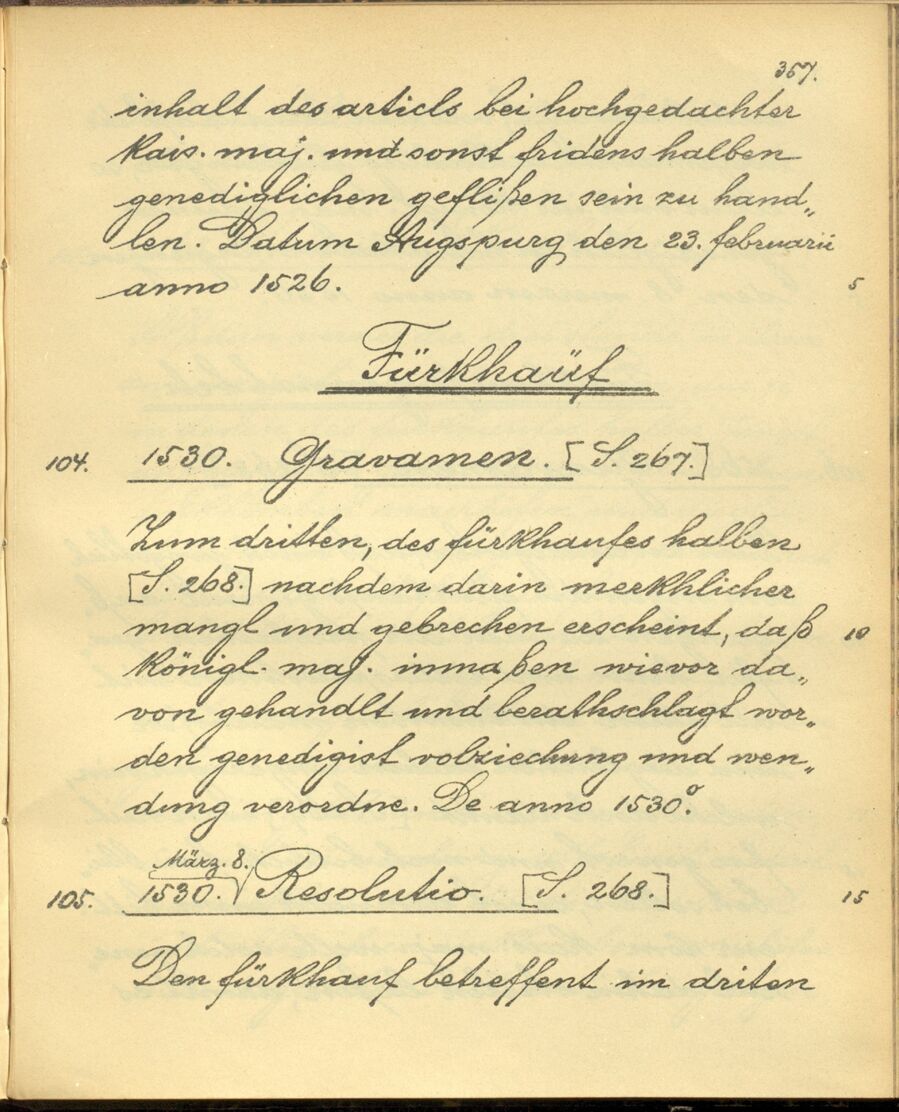 357.
inhalt des articls bei hochgedachter
kais. maj. und sonst fridens halben
genediglichen geflißen sein zu hand„
len. Datum Augspurg den 23. februarii
anno 1526. 5
Fürkhaüf
104. 1530. Gravamen. [S. 267.]
Zum dritten, des fürkhaufes halben
[S. 268.] nachdem darin merkhlicher
mangl und gebrechen erscheint, daß 10
königl. maj. inmaßen wievor da„
von gehandlt und berathschlagt wor„
den genedigist volziechung und wen„
dung verordne. De anno 1530º.
März. 8.
105. 1530. √ Resolutio. [S. 268.] 15
Den fürkhauf betreffent im driten